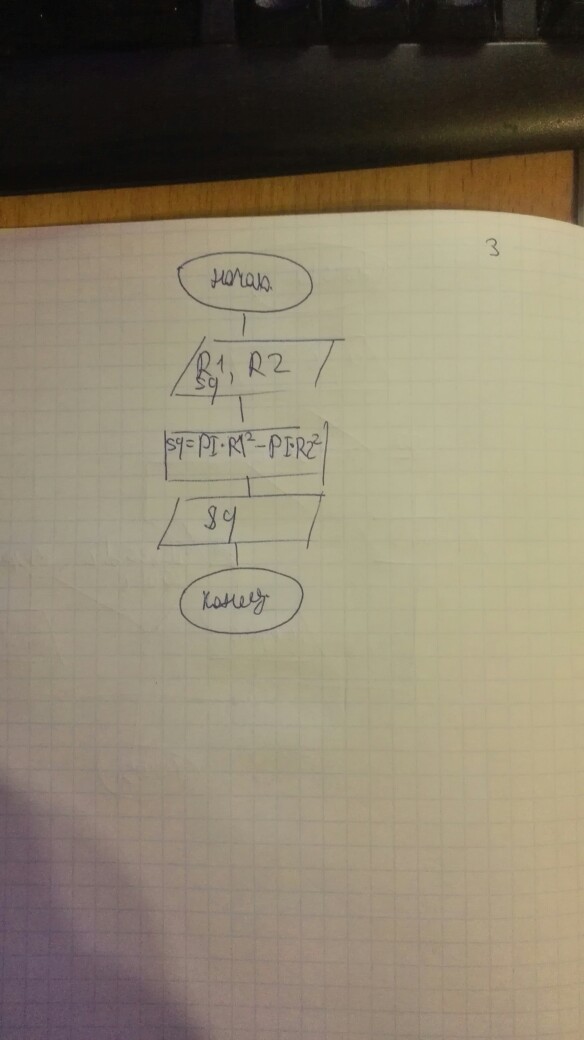 3
начало
R1, R2
sq
sq=PI·R1²-PI·R2²
sq
конец